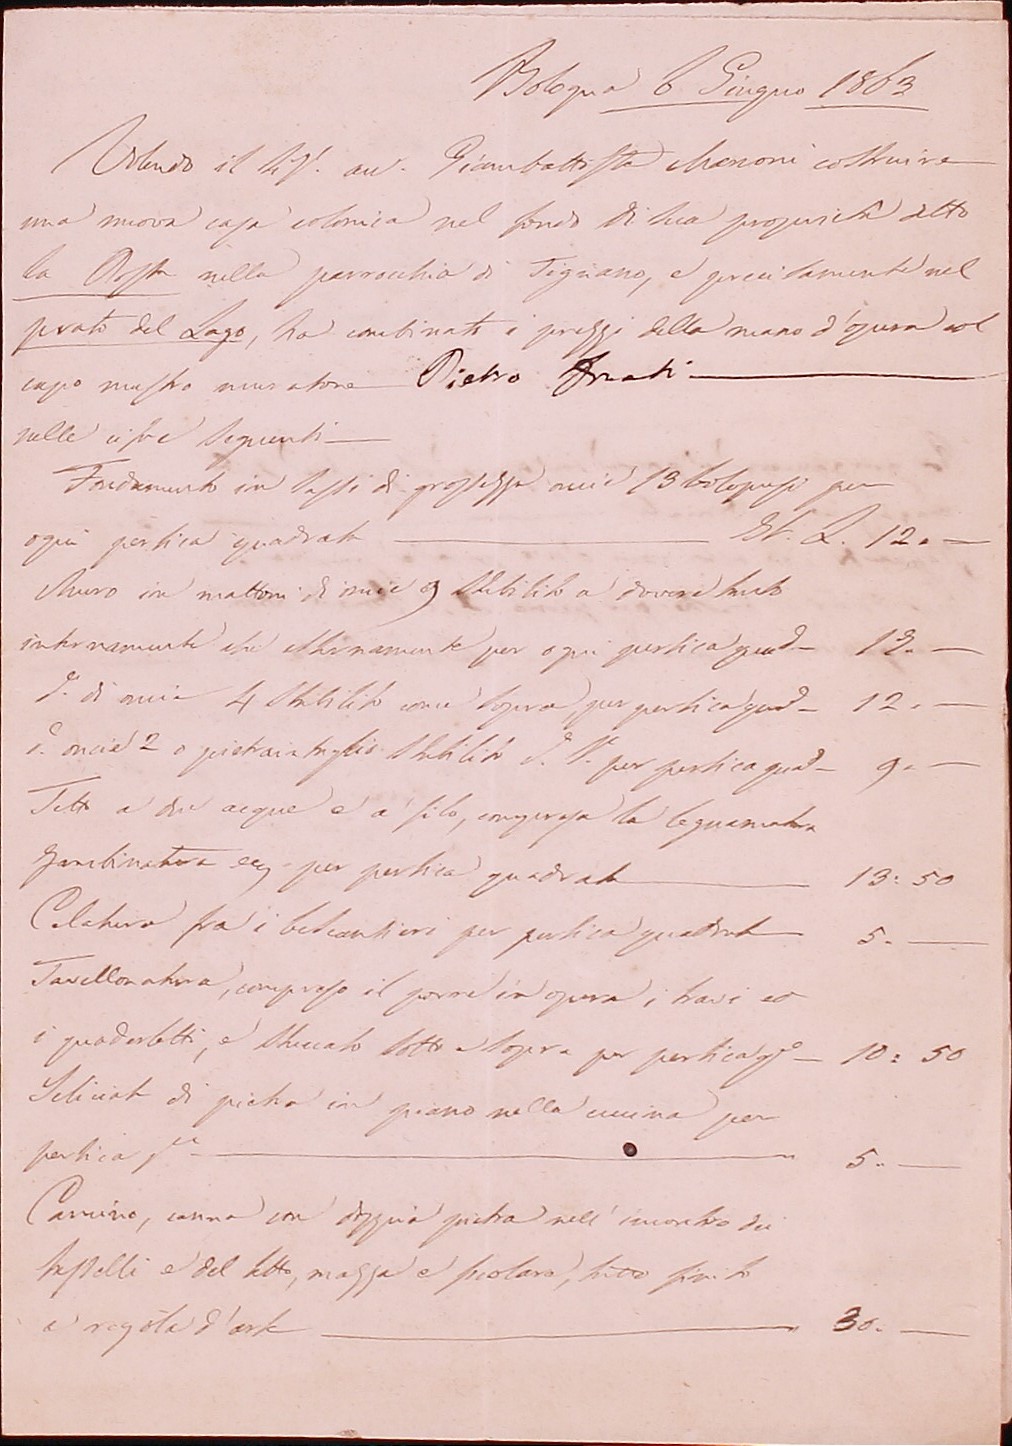 Bologna 6 Giugno 1863
Volendo il Sigr. avv. Giambattista costruire
una nuova casa colonica nel fondo di sua proprietà detto
la nella parrocchia di Tignano, e precisamente nel
prato del Lago, ha combinato i prezzi della mano d'opera col
capo mastro muratore Pietro
nelle cifre seguenti
Fondamento in sassi di grossezza oncie 13 bolognesi per
ogni pertica quadrata L. 12. —
Muro in mattoni di oncie 9 stabilito a dovere tanto
internamente che esternamente per ogni pertica quad. 12. —
d. di oncie 4 stabilito come sopra, per pertica quad. 12. —
d. oncie 2 o pietra in taglio stabilito per pertica quad. 9. —
Tetto a due acque e a filo, compresa la legnamatura
per pertica quadrata 13: 50
fra i per pertica quadrata 5. —
Tavellonatura, compreso il porre in opera i travi ed
i quaderletti, e stuccato sotto e sopra per pertica qa 10: 50
Seliciato di pietra in piano nella cucina per
pertica 5. —
Camino, canna con doppia pietra nell'incontro dei
tasselli e del tetto, mazza e focolare, tutto finito
a regola d'arte 30. —